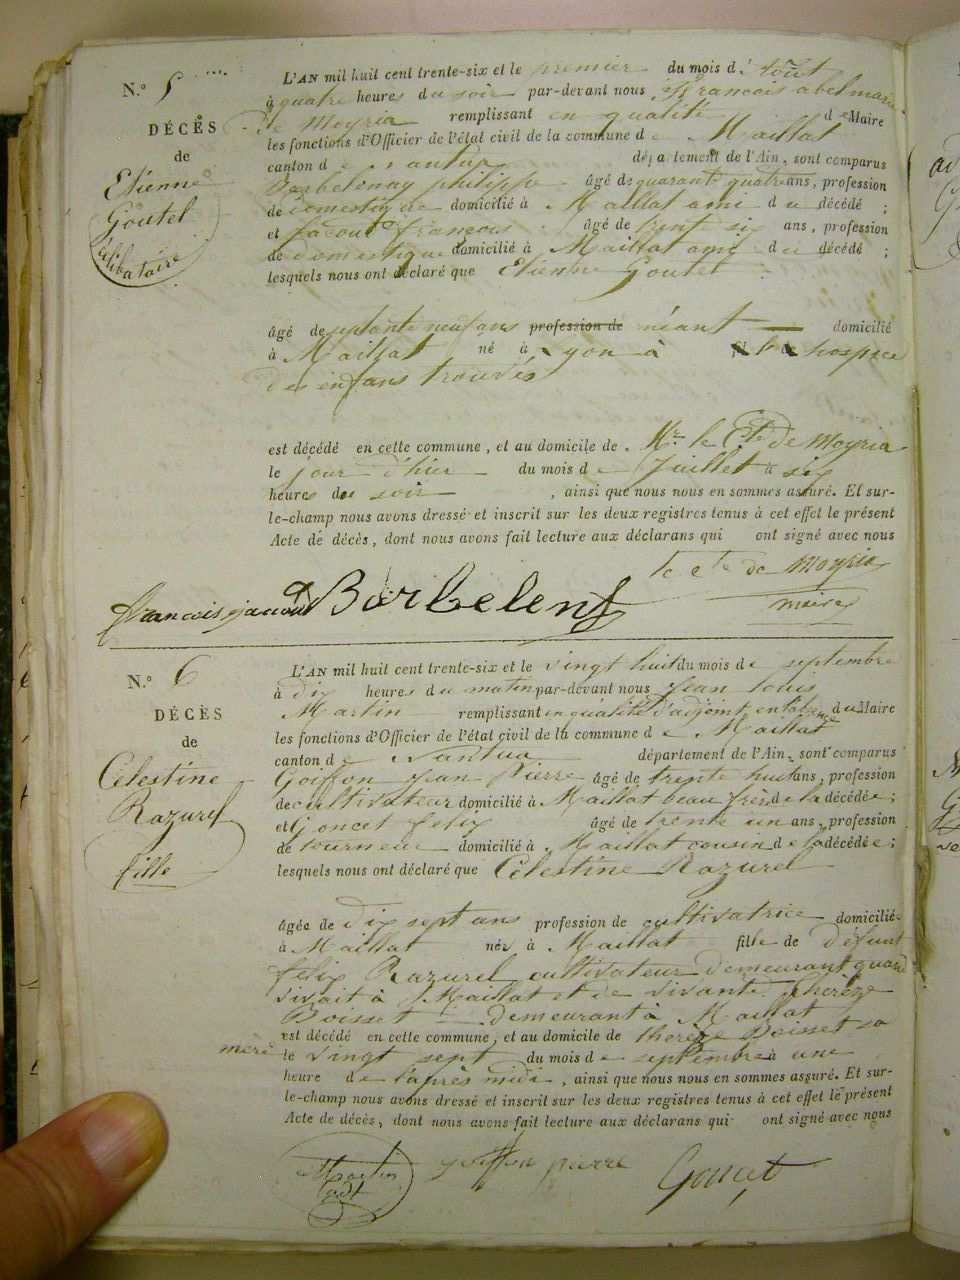 N.° 5
DÉCÈS
de
Etienne
Goutel
célibataire
L'AN mil huit cent trente-six et le premier du mois d'août
à quatre heures du soir par-devant nous François abel marie
de Moyria remplissant en qualité de Maire
les fonctions d'Officier de l'état civil de la commune de Maillat
canton de nantua département de l'Ain, sont comparus
Barbelenay philippe âgé de quarante quatre ans, profession
de Domestique domicilié à Maillat ami du décédé ;
et Jacout françois âgé de trent six ans, profession
de domestique domicilié à Maillat ami du décédé ;
lesquels nous ont déclaré que Etienne Goutel
âgé de septante neuf ans profession de néant domicilié
à Maillat né à Lyon à l'hospice
des enfans trouvés
est décédé en cette commune, et au domicile de Mr. le Cte de Moyria
le jour d'hier du mois de Juillet à six
heures du soir , ainsi que nous nous en sommes assuré. Et sur-
le-champ nous avons dressé et inscrit sur les deux registres tenus à cet effet le présent
Acte de décès, dont nous avons fait lecture aux déclarans qui ont signé avec nous
le cte de Moyria
francois jacout Barbelenet
maire
N.° 6
DÉCÈS
de
Célestine
Razurel
fille
L'AN mil huit cent trente-six et le vingt huit du mois de septembre
à dix heures du matin par-devant nous Jean louis
Martin remplissant en qualité d'adjoint en l'absence du Maire
les fonctions d'Officier de l'état civil de la commune de Maillat
canton de Nantua département de l'Ain, sont comparus
Goiffon Jean Pierre âgé de trente huit ans, profession
de cultivateur domicilié à Maillat beau frère de la décédée ;
et Goncet felix âgé de trente un ans, profession
de tourneur domicilié à Maillat cousin de la décédée ;
lesquels nous ont déclaré que Célestine Razurel
âgée de dix sept ans profession de cultivatrice domiciliée
à Maillat née à Maillat fille de défunt
félix Razurel cultivateur demeurant quand
vivait à Maillat et de vivante thérèze
Boisset demeurant à Maillat
est décédé en cette commune, et au domicile de thérèze Boisset sa
mère le vingt sept du mois de septembre à une
heure de l'après midi , ainsi que nous nous en sommes assuré. Et sur-
le-champ nous avons dressé et inscrit sur les deux registres tenus à cet effet le présent
Acte de décès, dont nous avons fait lecture aux déclarans qui ont signé avec nous
Martin goiffon pierre Goncet
adt